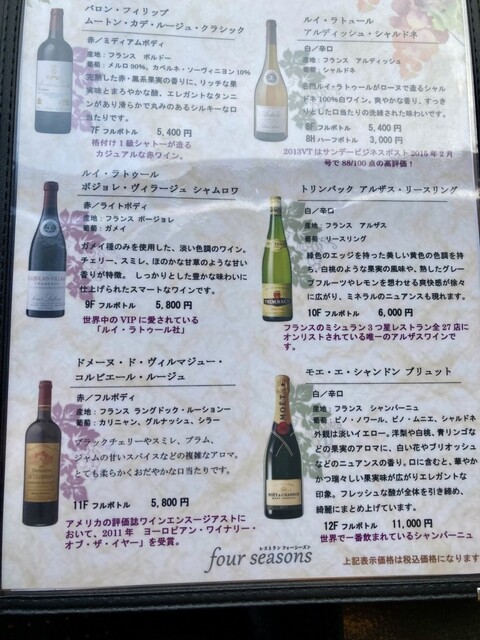 バロン・フィリップ
ムートン・カデ・ルージュ・クラシック
赤/ミディアムボディ
産地：フランス ボルドー
葡萄：メルロ90%、カベルネ・ソーヴィニヨン10%
完熟した赤・黒系果実の香りに、リッチな果
実味とまろやかな酸、エレガントなタンニ
ンがあり滑らかで丸みのあるシルキーな口
当たりです。
7F フルボトル 5,400 円
格付け1級シャトーが造る
カジュアルな赤ワイン。
ルイ・ラトゥール
ボジョレ・ヴィラージュ シャムロワ
赤/ライトボディ
産地：フランス ボージョレ
葡萄：ガメイ
ガメイ種のみを使用した、淡い色調のワイン。
チェリー、スミレ、ほのかな甘草のような甘い
香りが特徴。 しっかりとした豊かな味わいに
仕上げられたスマートなワインです。
9F フルボトル 5,800 円
世界中のVIPに愛されている
「ルイ・ラトゥール社」
ドメーヌ・ド・ヴィルマジュー・
コルビエール・ルージュ
赤/フルボディ
産地：フランス ラングドック・ルーションー
葡萄：カリニャン、グルナッシュ、シラー
ブラックチェリーやスミレ、プラム、
ジャムの甘いスパイスなどの複雑なアロマ。
とても柔らかくおだやかな口当たりです。
11F フルボトル 5,800 円
アメリカの評価誌ワインエンスージアストに
おいて、2011年 ヨーロピアン・ワイナリー・
オブ・ザ・イヤー」を受賞。
ルイ・ラトゥール
アルディッシュ・シャルドネ
白/辛口
産地：フランス アルディッシュ
葡萄：シャルドネ
名門ルイ・ラトゥールがローヌで造るシャル
ドネ100%白ワイン。爽やかな香り、すっき
りとした口当たりの洗練された味わいです。
8F フルボトル 5,400 円
8H ハーフボトル 3,000 円
2013VTはサンデービジネスポスト2015年2月
号で88/100点の高評価！
トリンバック アルザス・リースリング
白/辛口
産地：フランス アルザス
葡萄：リースリング
緑色のエッジを持った美しい黄色の色調を持
ち、白桃のような果実の風味や、熟したグレー
プフルーツやレモンを想わせる爽快感が徐々
に広がり、ミネラルのニュアンスも現れます。
10F フルボトル 6,000 円
フランスのミシュラン3つ星レストラン全27店に
オンリストされている唯一のアルザスワインで
す。
モエ・エ・シャンドン ブリュット
白/辛口
産地：フランス シャンパーニュ
葡萄：ピノ・ノワール、ピノ・ムニエ、シャルドネ
外観は淡いイエロー。洋梨や白桃、青リンゴな
どの果実のアロマに、白い花やブリオッシュ
などのニュアンスの香り。口に含むと、華やか
かつ瑞々しい果実味が広がりエレガントな
印象。フレッシュな酸が全体を引き締め、
綺麗にまとめ上げています。
12F フルボトル 11,000 円
世界で一番飲まれているシャンパーニュ
レストラン フォーシーズン
four seasons
上記表示価格は税込価格になります。